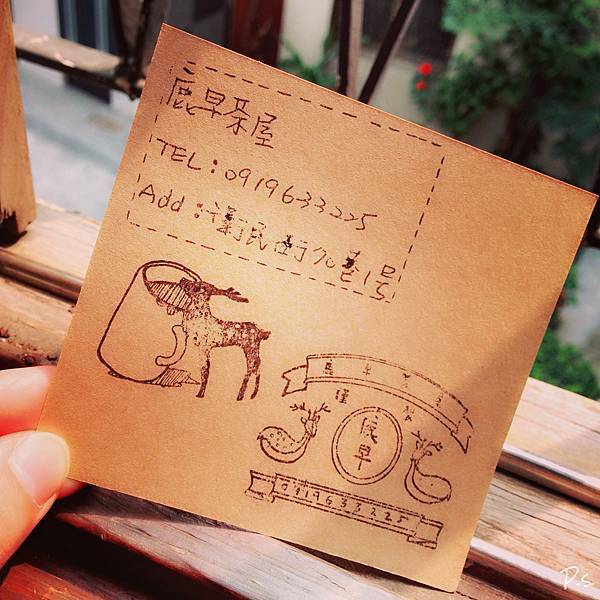 鹿早茶屋
TEL:0919633225
Add:衛民街70巷1号
鹿早茶屋
謹製
鹿早
0919633225
P.S.